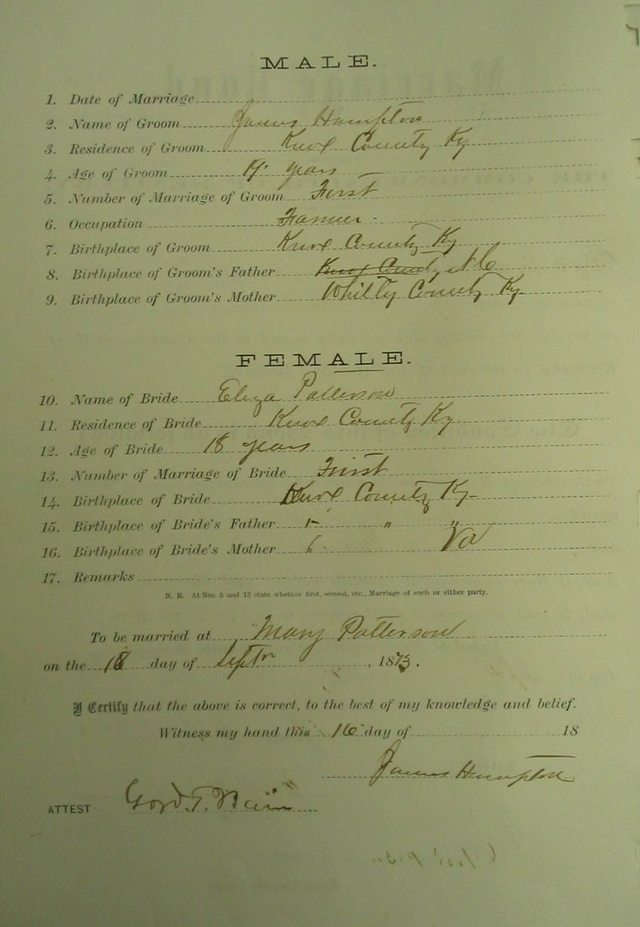 MALE.
1. Date of Marriage
2. Name of Groom James Hampton
3. Residence of Groom Knox County Ky
4. Age of Groom 19 years
5. Number of Marriage of Groom First
6. Occupation Farmer
7. Birthplace of Groom Knox County Ky
8. Birthplace of Groom's Father Knox County N C
9. Birthplace of Groom's Mother Whitly County Ky
FEMALE.
10. Name of Bride Eliza Patterson
11. Residence of Bride Knox County Ky
12. Age of Bride 18 years
13. Number of Marriage of Bride First
14. Birthplace of Bride Knox County Ky
15. Birthplace of Bride's Father " "
16. Birthplace of Bride's Mother Va
17. Remarks
N. B. At Nos. 5 and 13 state whether first, second, etc., Marriage of each or either party.
To be married at Mary Patterson
on the 18 day of Septr, 1873.
I Certify that the above is correct, to the best of my knowledge and belief.
Witness my hand this 16 day of 18
James Hampton
ATTEST